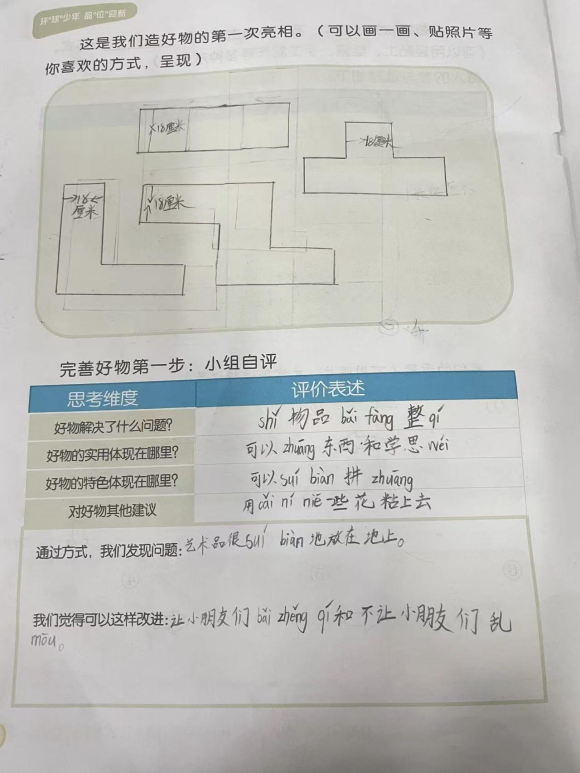 环“球”少年 晶“位”迎新
这是我们造好物的第一次亮相。（可以画一画、贴照片等
你喜欢的方式，呈现）
18厘米
18厘米
18
厘米
18厘米
完善好物第一步：小组自评
思考维度 评价表述
好物解决了什么问题? shǐ 物品 bǎi fàng 整 qí
好物的实用体现在哪里? 可以 zhuāng 东西 和学思 wéi
好物的特色体现在哪里? 可以 suí biàn 拼 zhuāng
对好物其他建议 用 cǎi ní niē 一些 花 粘上去
通过方式，我们发现问题: 艺术品很 suí biàn 地放在 地上。
我们觉得可以这样改进: 让小朋友们 bǎi zhěng qí 和 不让小朋友 们 乱
mōu。